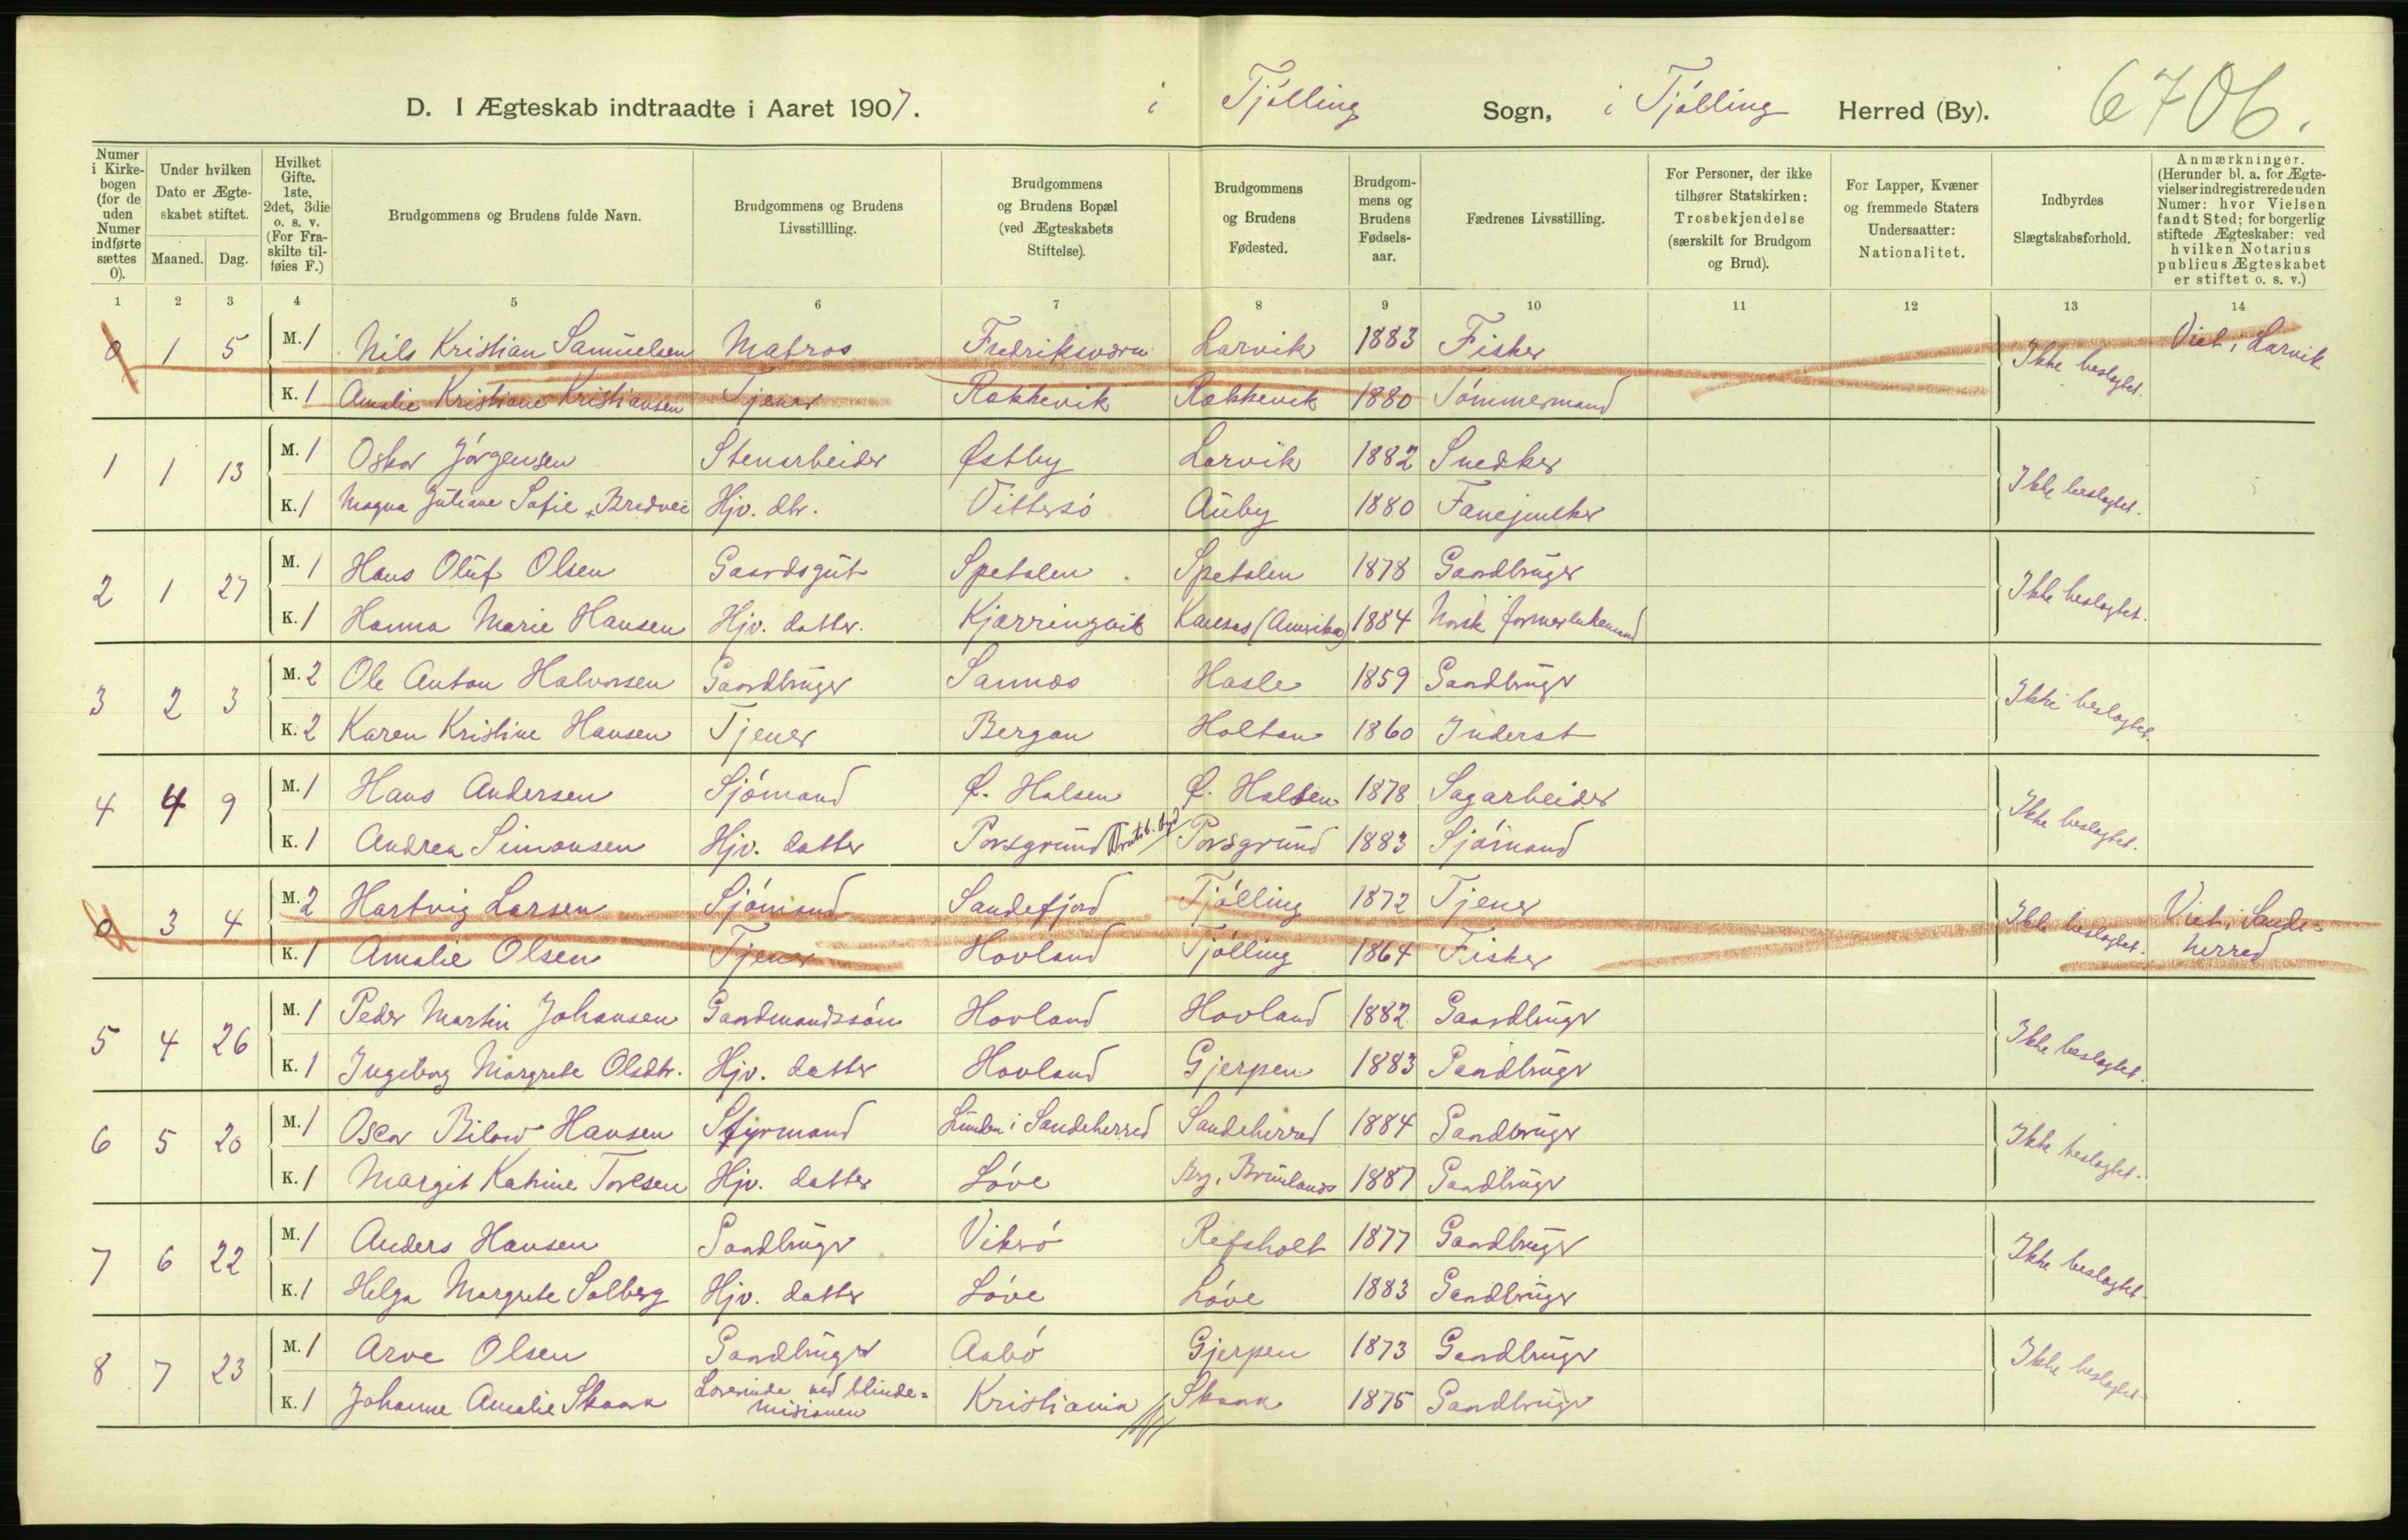 D. I Ægteskab indtraadte i Aaret 1907. i Tjölling Sogn, i Tjölling Herred (By). 6706.
Numer i Kirkebogen (for de uden Numer indførte sættes 0).
Under hvilken Dato er Ægteskabet stiftet.
Maaned. Dag.
Hvilket Gifte. 1ste, 2det, 3die o. s. v. (For Fraskilte tilføies F.)
Brudgommens og Brudens fulde Navn.
Brudgommens og Brudens Livsstillling.
Brudgommens og Brudens Bopæl (ved Ægteskabets Stiftelse).
Brudgommens og Brudens Fødested.
Brudgommens og Brudens Fødselsaar.
Fædrenes Livsstilling.
For Personer, der ikke tilhører Statskirken: Trosbekjendelse (særskilt for Brudgom og Brud).
For Lapper, Kvæner og fremmede Staters Undersaatter: Nationalitet.
Indbyrdes Slægtskabsforhold.
Anmærkninger. (Herunder bl. a. for Ægtevielser indregistrerede uden Numer: hvor Vielsen fandt Sted; for borgerlig stiftede Ægteskaber: ved hvilken Notarius publicus Ægteskabet er stiftet o. s. v.)
1 2 3 4 5 6 7 8 9 10 11 12 13 14
0 1 5 M. 1 Nils Kristian Samuelsen Matros Fredriksværn Larvik 1883 Fisker Ikke beslegtet. Viet i Larvik
K. 1 Amalie Kristiane Kristiansen Tjener Rækkevik Rækkevik 1880 Tömmermand
1 1 13 M. 1 Oskar Jörgensen Stenarbeider Østby Larvik 1882 Snedker Ikke beslegtet.
K. 1 Magna Juliane Sofie Bredvei Hjv. dtr. Vittersö Auby 1880 Fanejunker
2 1 27 M. 1 Hans Oluf Olsen Gaardsgut Spetalen Spetalen 1878 Gaardbruger Ikke beslegtet.
K. 1 Hanna Marie Hansen Hjv. datter. Kjærringvik Kansas (Amerika) 1884 Norsk
3 2 3 M. 2 Ole Anton Halvorsen Gaardbruger Sannæs Hasle 1859 Gaardbruger Ikke beslegtet.
K. 2 Karen Kristine Hansen Tjener Bergan Holtan 1860 Inderst
4 4 9 M. 1 Hans Andersen Sjömand Ø. Halsen Ø. Halsen 1878 Sagarbeider Ikke beslegtet.
K. 1 Andrea Simonsen Hjv. datter Porsgrund Porsgrund 1883 Sjömand
0 3 4 M. 2 Hartvig Larsen Sjömand Sandefjord Tjölling 1872 Tjener Ikke beslegtet. Viet i Sandeherred
K. 1 Amalie Olsen Tjener Hovland Tjölling 1864 Fisker
5 4 26 M. 1 Peder Martin Johansen Gaardmandssön Hovland Hovland 1882 Gaardbruger Ikke beslegtet.
K. 1 Ingeborg Margrete Olsdtr. Hjv. datter Hovland Gjerpen 1883 Gaardbruger
6 5 20 M. 1 Oscar Bilow Hansen Styrmand Lunden i Sandeherred Sandeherred 1884 Gaardbruger Ikke beslegtet.
K. 1 Margit Katrine Toresen Hjv. datter Löve Brunlanes 1887 Gaardbruger
7 6 22 M. 1 Anders Hansen Gaardbruger Viksö Refsholt 1877 Gaardbruger Ikke beslegtet.
K. 1 Helga Margrete Solberg Hjv. datter Löve Löve 1883 Gaardbruger
8 7 23 M. 1 Arve Olsen Gaardbruger Aabö Gjerpen 1873 Gaardbruger Ikke beslegtet
K. 1 Johanne Amalie Skaara Lærerinde ved blindemisionen Kristiania Skaara 1875 Gaardbruger